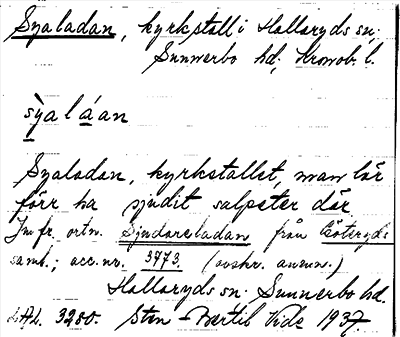 Syaladan, kyrkstall i Hallaryds sn;
Sunnerbo hd; Kronob. l.
sỳaláan
Syaladan, kyrkstallet, man lär
förr ha sjudit salpeter där
Jmfr. ortn. Sjudareladan från Göteryds
saml.; acc.nr. 3773. (avskr. anm.)
Hallaryds sn. Sunnerbo hd.
3280. Sten-Bertil Vide 1937.